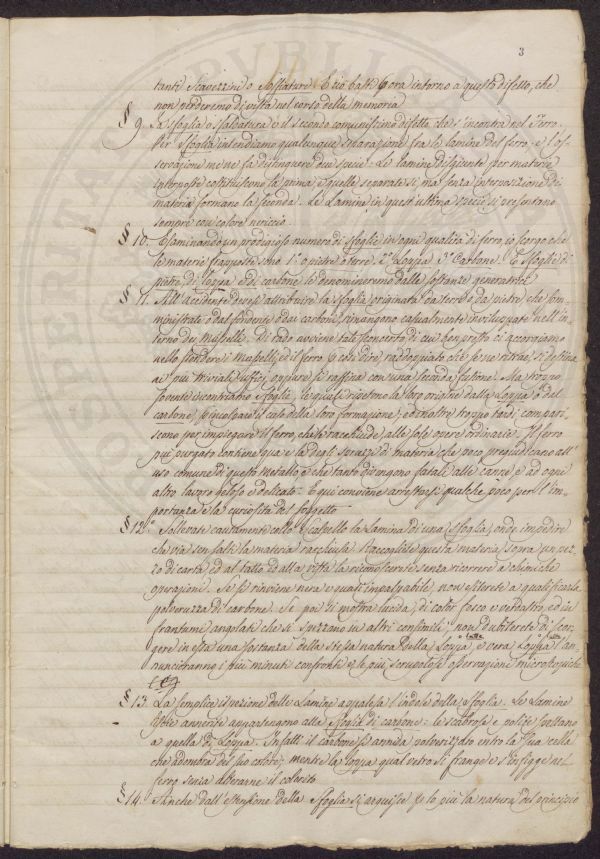 3
tanti Scavezzini o Saffature. E ciò basti per ora intorno a questo difetto, che
non perderemo di vista nel corso della memoria
§ 9. La sfoglia o sfaldatura è il secondo comunissimo difetto che s'incontra nel Ferro.
Per sfoglia intendiamo qualunque separazione fra le lamine del ferro, e l'os-
servazione me ne fa distinguere due specie. Le lamine disgiunte per materie
interposte costituiscono la prima, e quelle separate sì, ma senza interposizione di
materia formano la seconda. Le Lamine in quest'ultima specie si presentano
sempre con colore nericcio.
§ 10. Esaminando un prodigioso numero di sfoglie in ogni qualità di ferro, io scorgo che
le materie frapposte sono 1.° o pietre o terre. 2.° Loppa 3.° Carbone. E Sfoglie di
pietre, di loppa o di carbone si denomineremo dalle sostanze generatrici.
§ 11. All'accidente devesi attribuire la sfoglia originata da terre o da pietre, che som-
ministrate o dal fondente o dai carboni, rimangono casualmente inviluppate nell'in-
terno dei Masselli. Di rado avviene tale sconcerto di cui ben presto ci accorgiamo
nello bordere i Masselli, ed il ferro così dirò raddoppiato che se ne ritrae, si destina
ai più triviali uffici, oppure si raffina con una seconda fusione. Ma troppo
sovente incontriamo Sfoglie, le quali ripetono la loro origine dalla Loppa o dal
carbone, è inculpato il caso della loro formazione, ed inoltre troppo tardi compari-
scono per impiegare il ferro, che le racchiude, alle sole opere ordinarie. Il ferro
più purgato contiene qua e là degli sprazzi di materia che poco pregiudicano all'
uso comune di questo Metallo, e che tanto divengono fatali alle canne e ad ogni
altro lavoro geloso e delicato. E qui conviene arrestarsi qualche poco per l'im-
portanza e la curiosità del soggetto.
§ 12.° Sollevate cautamente collo Scarpello la Lamina di una sfoglia, onde impedire
che via sen salti la materia racchiusa. Raccogliete questa materia sopra un pez-
zo di carta, ed al tatto ed alla vista la riconoscerete senza ricorrere a chimiche
operazioni. Se si rinviene nera e quasi impalpabile, non esiterete a qualificarla
polveruzza di carbone. Se poi si mostra lucida, di color fosco e verdastro, ed in
frantumi angolati che si spezzano in altri consimili, non dubiterete di scor-
gere in essa una sostanza della stessa natura della Loppa, e vera Loppa l'an-
nuncieranno i più minuti confronti e le più scrupolose osservazioni microscopiche
§ 13. La semplice ispezione delle Lamine appalesa l'indole della sfoglia. Le Lamine
tutte annerite appartengono alla Sfoglia di carbone: le scabrose e polite spettano
a quella di Loppa. Infatti il carbone si annida polverizzato entro la sua cella
che adombra del suo colore, mentre la Loppa qual vetro si frange e s'infigge nel
ferro senza alterarne il colorito
§ 14. Anche dall'estensione della Sfoglia si arguisce per lo più la natura del principio